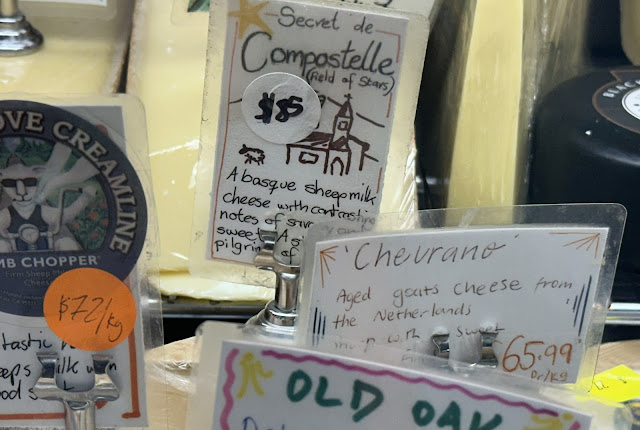 Secret de
Compostelle
(field of stars)
$85
A basque sheep milk
cheese with
notes of
sweet
pilgrim of
OVE CREAMLINE
MB CHOPPER
Firm Sheep
Cheese
$72/kg
tastic
eeps milk
ood
'Chevrano'
Aged goats cheese from
the Netherlands
with sweet
65.99
Pr/kg
OLD OAK
BLAC